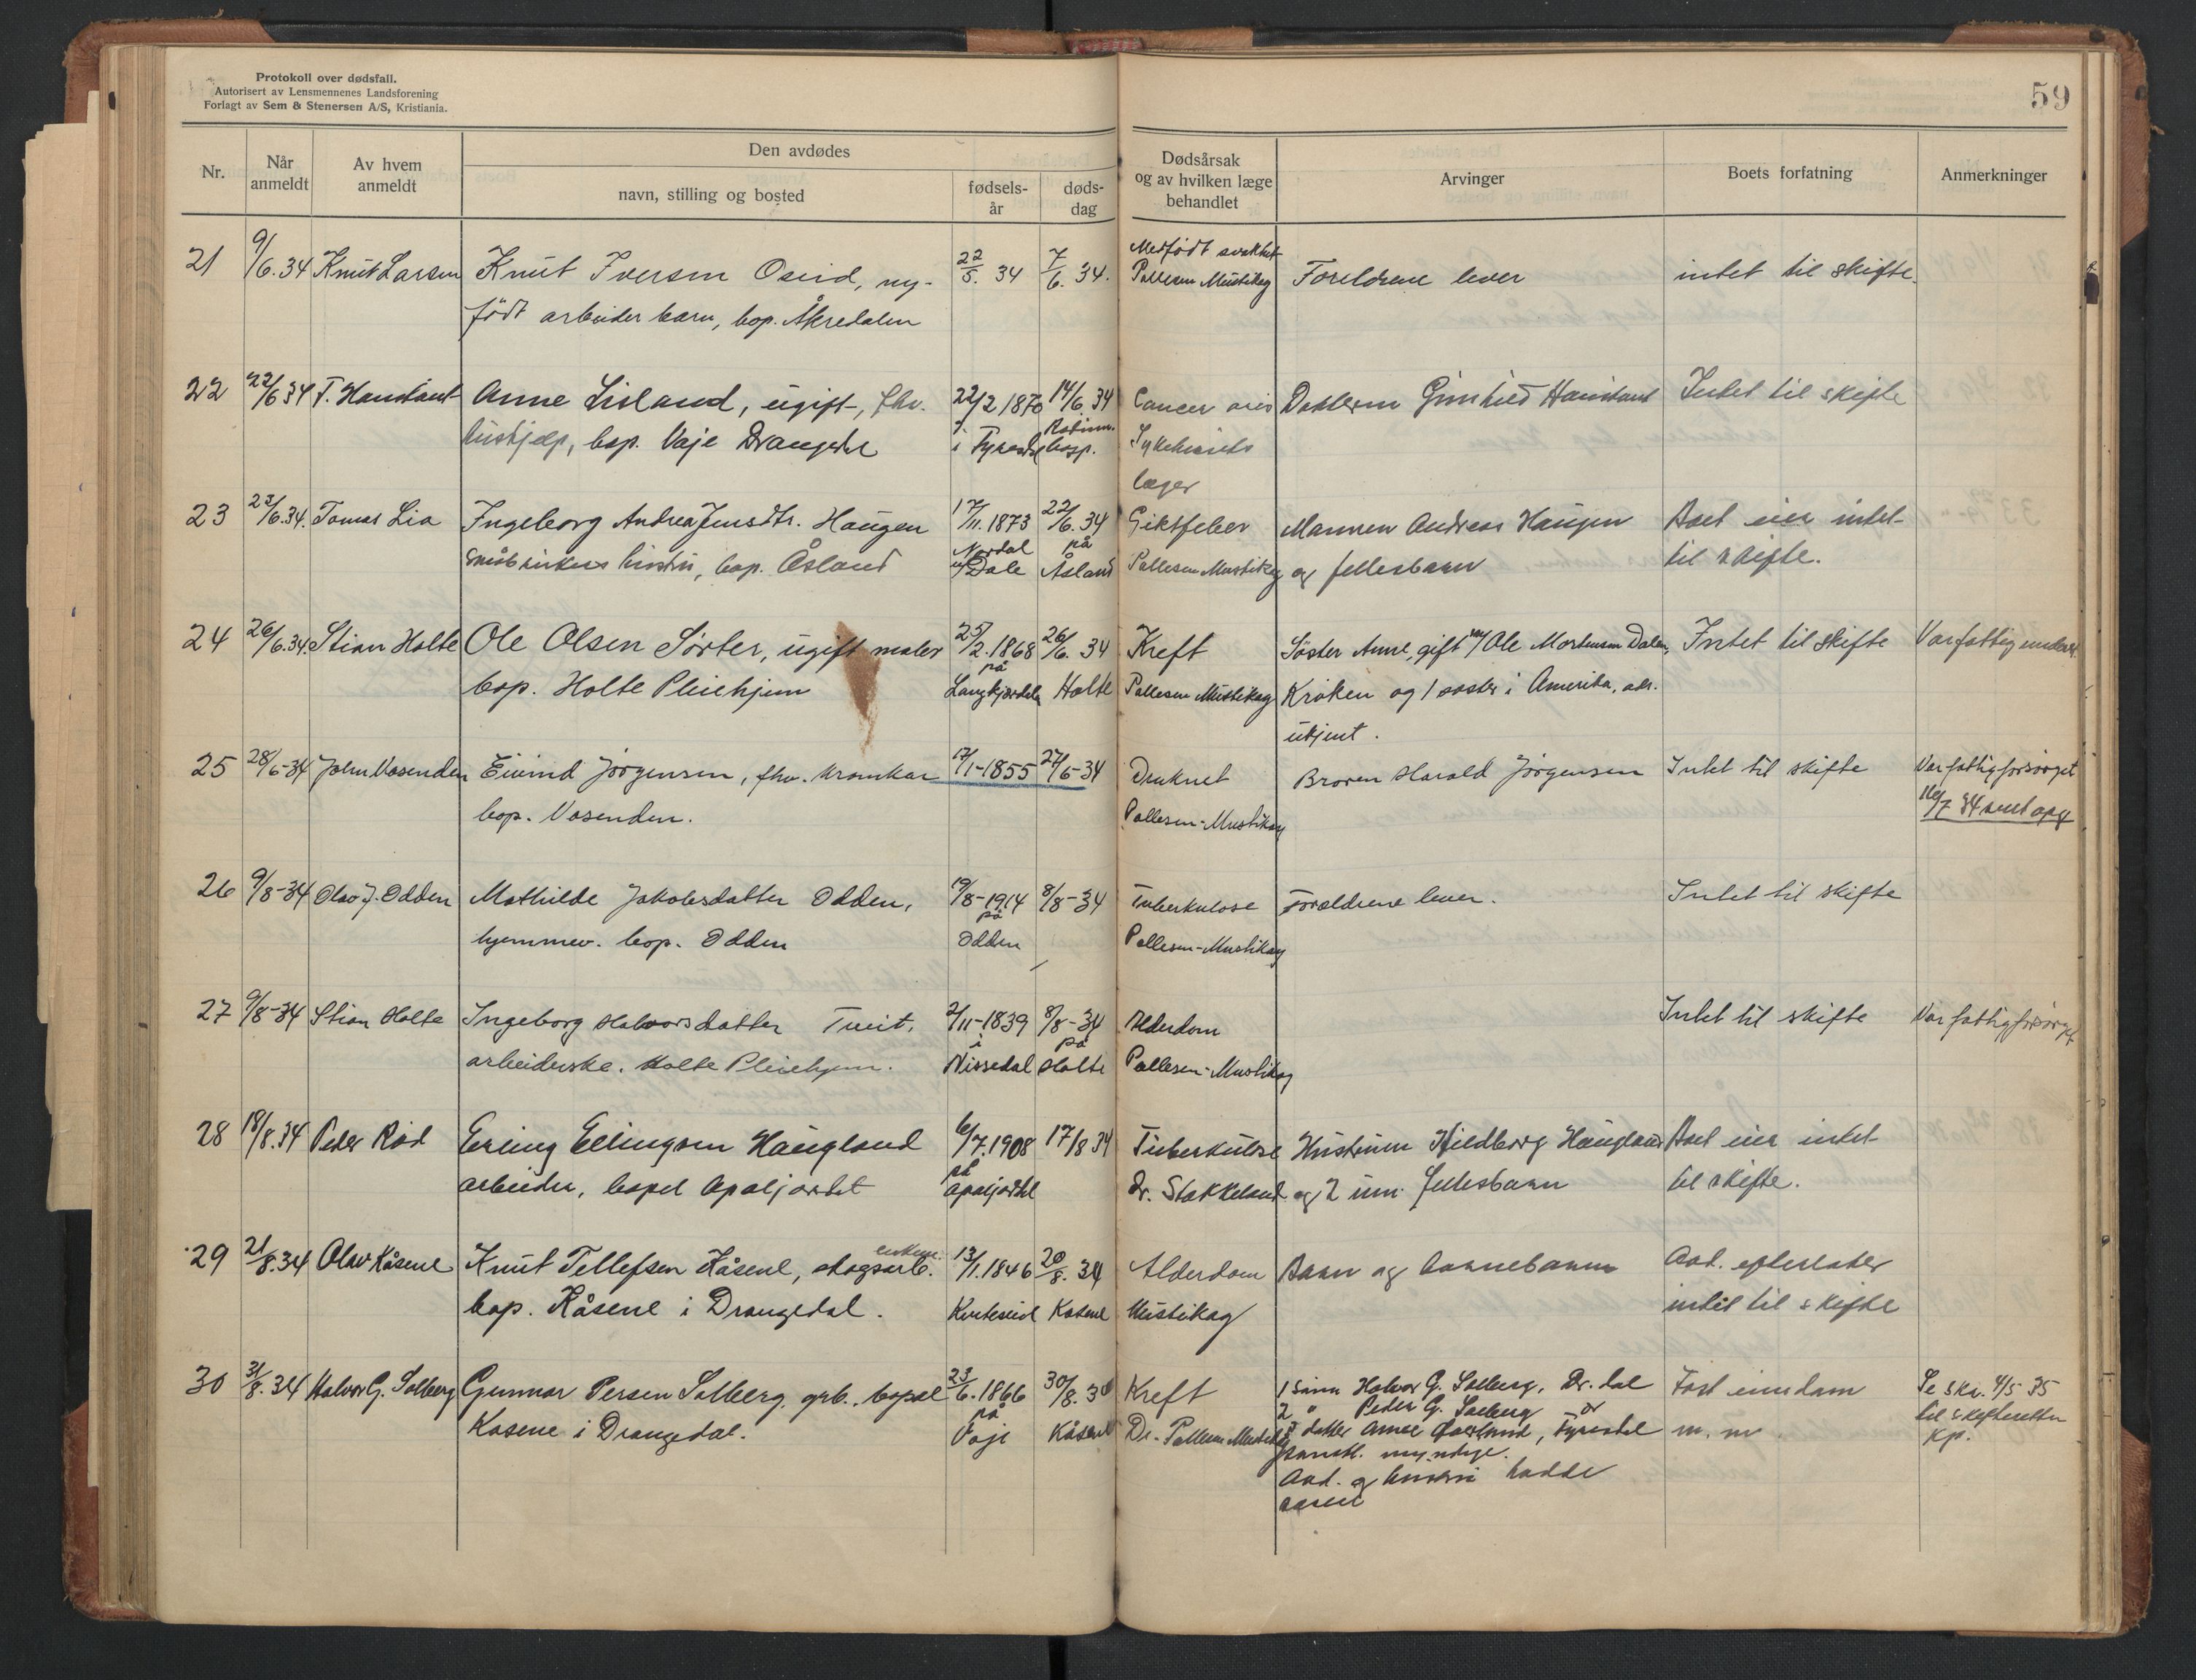 Protokoll over dødsfall.
Autorisert av Lensmennenes Landsforening
Forlagt av Sem & Stenersen A/S, Kristiania.
59
Nr.
Når anmeldt
Av hvem anmeldt
Den avdødes
navn, stilling og bosted
fødsels-år
døds-dag
Dødsårsak og av hvilken læge behandlet
Arvinger
Boets forfatning
Anmerkninger
21 9/6.34 Knut Larsen Knut Iversen Oseid, ny- 22/5. 34 7/6. 34. Medfødt svakhet
født arbeider barn, bop. Åkredalen Pallesen Mustikag Foreldrene lever intet til skifte.
22 22/6 34 T. Haustant Anne Lisland, ugift, fhv. 22/2 1870 14/6.34 Cancer oris Datteren Gunhild Haustant Intet til skifte
hushjelp, bop. Vaje Drangedal i Tyresdal hosp. Sykehusets
læger
23 23/6.34. Tomas Lia Ingeborg Andrea Jensdtr. Haugen 17/11.1873 22/6.34 Giktfeber Mannen Andreas Haugen Boet eier intet
småbrukers hustru, bop. Åsland Nordal Dale på Åsland Pallesen Mustikag og fellesbarn til skifte.
24 26/6.34. Stian Holte Ole Olsen Sørter, ugift maler 25/2.1868 26/6. 34 Kreft Søster Anne, gift m/ Ole Mortensen Dalen, Intet til skifte Var fattigunderst.
bop. Holte Pleiehjem på Langkjærdalen Holte Pallesen Mustikag Kroken og 1 søster i Amerika, adr.
ukjent.
25 28/6-34 John Vosenden Eivind Jørgensen, fhv. kramkar 17/1-1855 27/6-34 Druknet Broren Harald Jørgensen Intet til skifte Var fattigforsørget
bop. Vosenden. Pallesen-Mustikag 16/7 34 sendt opg
26 9/8-34 Olav J. Odden Mathilde Jakobsdatter Odden, 19/8-1914 8/8-34 Tuberkulose Forældrene lever. Intet til skifte
hjemmev. bop. Odden på Odden Pallesen-Mustikag
27 9/8-34 Stian Holte Ingeborg Halvorsdatter Tveit, 2/11-1839 8/8-34 Alderdom Intet til skifte Var fattigforsørget
arbeiderske. Holte Pleiehjem. i Nissedal på Holte Pallesen-Mustikag
28 18/8.34 Peder Rød Erling Ellingsen Haugland 6/7.1908 17/8 34 Tuberkulose Hustruen Hildborg Haugland Boet eier intet
arbeider, bopel Apaljordet på Apaljordet Dr. Stakkeland og 2 um. fellesbarn til skifte.
29 21/8.34 Olav Kåsene Knut Tellefsen Kåsene, skogsarb. enkem. 13/1.1846 20/8. 34 Alderdom Barn og barnebarn Avd. efterlater
bop. Kåsene i Drangedal. Kviteseid Kåsene Mustikag intet til skifte
30 31/8.34 Halvor G. Solberg Gunnar Persen Solberg, grb., bopel 23/6.1866 30/8.34 Kreft 1 Sønn Halvor G. Solberg, Dr.dal Fast eiendom Se skr. 4/5 35
Kåsene i Drangedal. på Voje Kåsene Dr. Pallesen Mustikag 2 " Peder G. Solberg m. m. til skifteretten
3 datter Anne Øverland, Fyresdal Kp.
samtl. myndige.
Avd. og hustru hadde
særeie